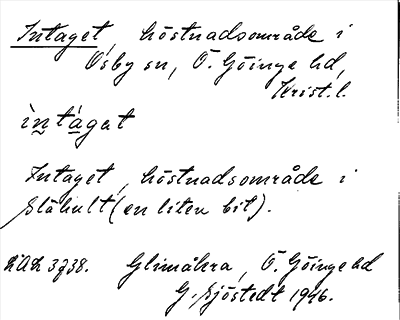 Intaget, kostnadsområde i
Osby sn, Ö. Göinge hd,
Krist. l.
ìntágat
Intaget, kostnadsområde i
Slähult (en liten bit).
LAL 3738. Glimåkra, Ö. Göinge hd
G. Sjöstedt 1946.